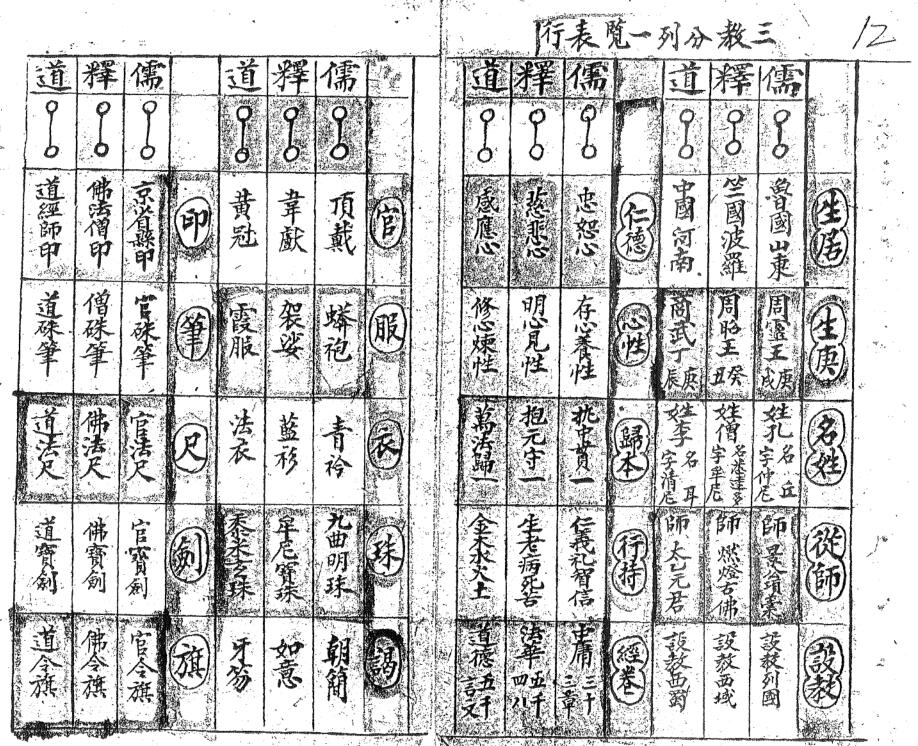 三教分列一覽表行
12
生居 生庚 名姓 從師 設教
儒 魯國山東 周靈王 庚戌 姓孔 名丘 字仲尼 師 設教列國
釋 竺國波羅 周昭王 癸丑 姓僧 字牟尼 師 燃燈古佛 設教西域
道 中國河南 商武丁 庚辰 姓李 名耳 師 太乙元君 設教西蜀
仁德 心性 歸本 行持 經卷
儒 忠恕心 存心養性 執中貫一 仁義礼智信 中庸 三十三章
釋 慈悲心 明心見性 抱元守一 生老病死苦 法華 五千四八
道 感應心 修心煉性 萬法歸一 金木水火土 道德 五千言文
官 服 衣 珠 謁
儒 頂戴 蟒袍 青衿 九曲明珠 朝簡
釋 韋獻 袈裟 藍衫 牟尼寶珠 如意
道 黃冠 霞服 法衣 黍米玄珠 牙笏
印 筆 尺 劍 旗
儒 京省縣印 官硃筆 官法尺 官寶劍 官令旗
釋 佛法僧印 僧硃筆 佛法尺 佛寶劍 佛令旗
道 道經師印 道硃筆 道法尺 道寶劍 道令旗